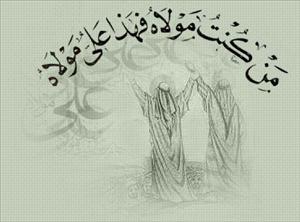 مَن كُنتُ مَولَاهُ فَهٰذَا عَلِىٌّ مَولَاهُ
علی